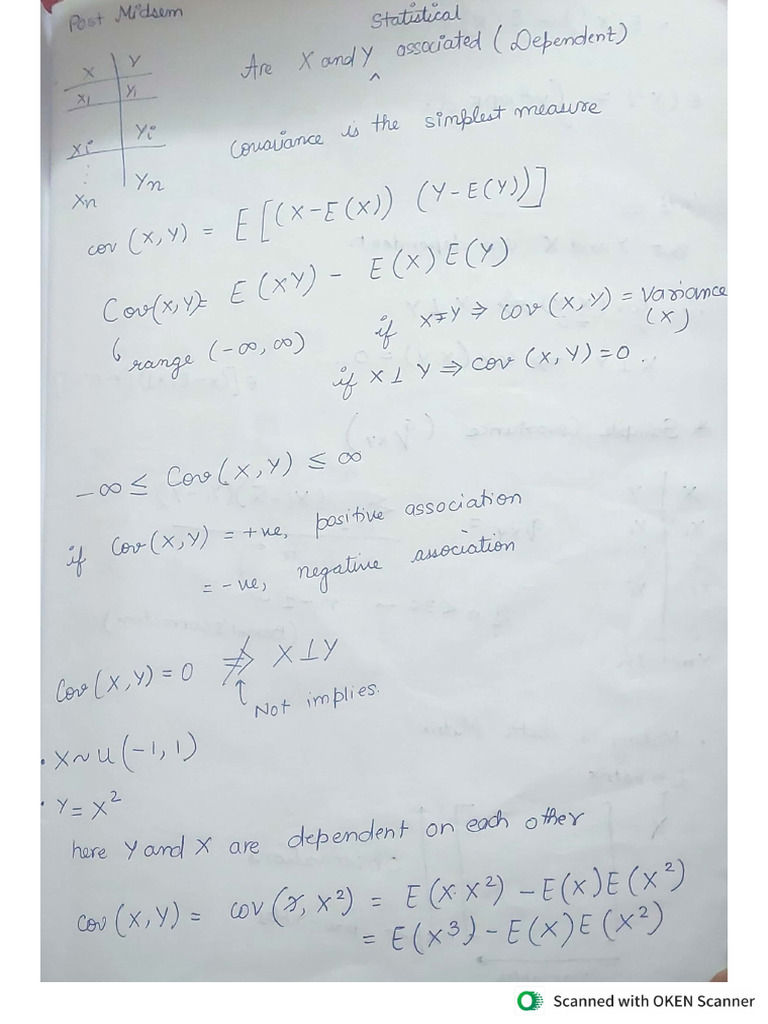 Post Midsem
Statistical
Are X and Y ^ associated (Dependent)
X | Y
X1 | Y1
Xi | Yi
⋮
Xn | Yn
Covariance is the simplest measure
cov (X, Y) = E[(X-E(X)) (Y-E(Y))]
Cov(X,Y) = E(XY) - E(X)E(Y)
↳ range (-∞, ∞)
if X=Y ⇒ cov(X, Y) = Variance (X)
if X⊥Y ⇒ cov (X, Y) = 0.
-∞ ≤ Cov(X, Y) ≤ ∞
if Cov(X, Y) = +ve, positive association
= -ve, negative association
Cov(X, Y) = 0 ⇏ X⊥Y
↑ Not implies.
• X~U(-1, 1)
• Y = X²
here Y and X are dependent on each other
cov (X, Y) = cov(X, X²) = E(X·X²) - E(X)E(X²)
= E(X³) - E(X)E(X²)
Scanned with OKEN Scanner